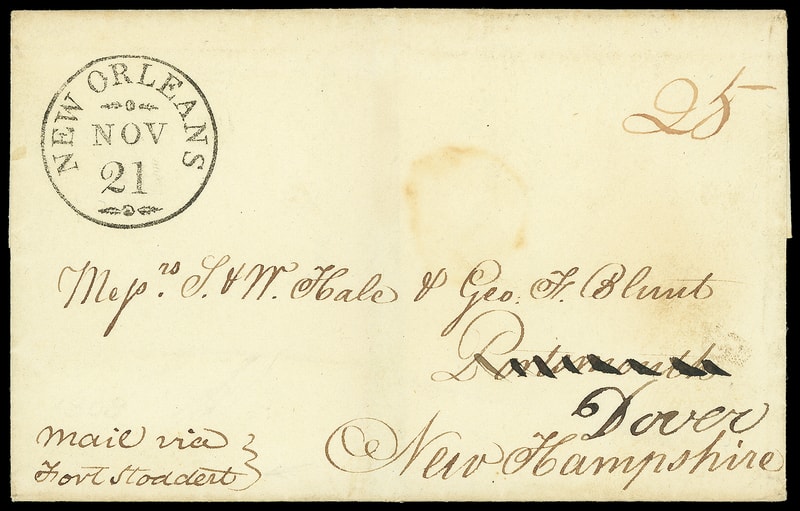 NEW ORLEANS
NOV
21
25
Messrs. S. & W. Hale & Geo. F. Blunt
Portsmouth
Dover
New Hampshire
Mail via
Fort Stoddert